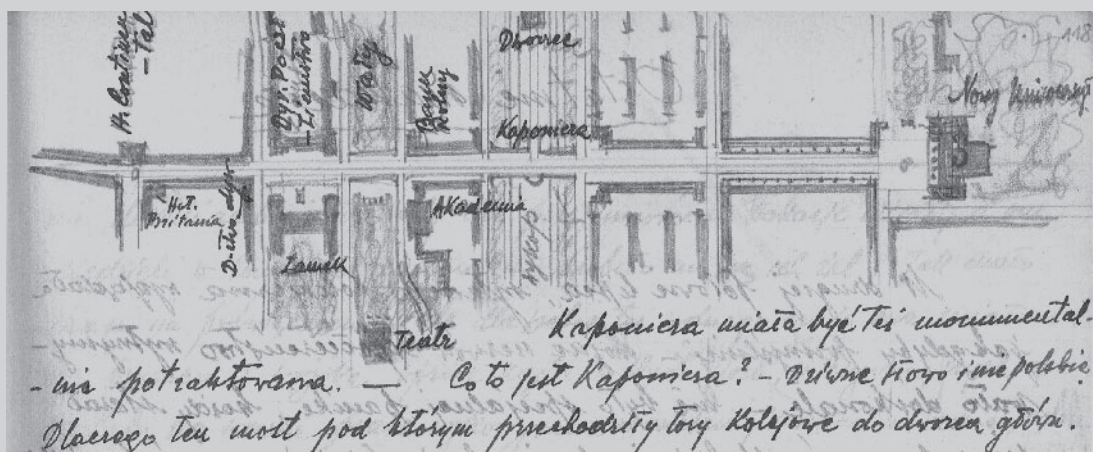 118
H. Continen-
-tal
Dyr. Poczt
-Ziemstwo
Wały
Bank
Rolny
Dworzec
Kaponiera
Nowy Uniwersyt
Hot.
Britania
D-ctwo dyr.
Zamek
Akademia
wykop
Teatr
Kaponiera miała być też monumental-
-nie potraktowana. — Co to jest Kaponiera? – Dziwne słowo i nie polskie
Dlaczego ten most pod którym przechodziły tory kolejowe do dworca główn.